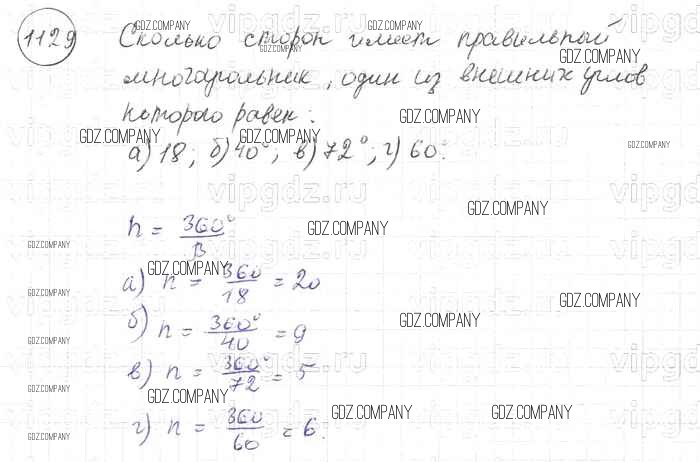 1129 Сколько сторон имеет правильный
многоугольник, один из внешних углов
которого равен:
а) 18; б) 40°; в) 72°; г) 60°.
n = 360° / β
а) n = 360 / 18 = 20
б) n = 360° / 40 = 9
в) n = 360° / 72 = 5
г) n = 360 / 60 = 6.
GDZ.COMPANY
vipgdz.ru